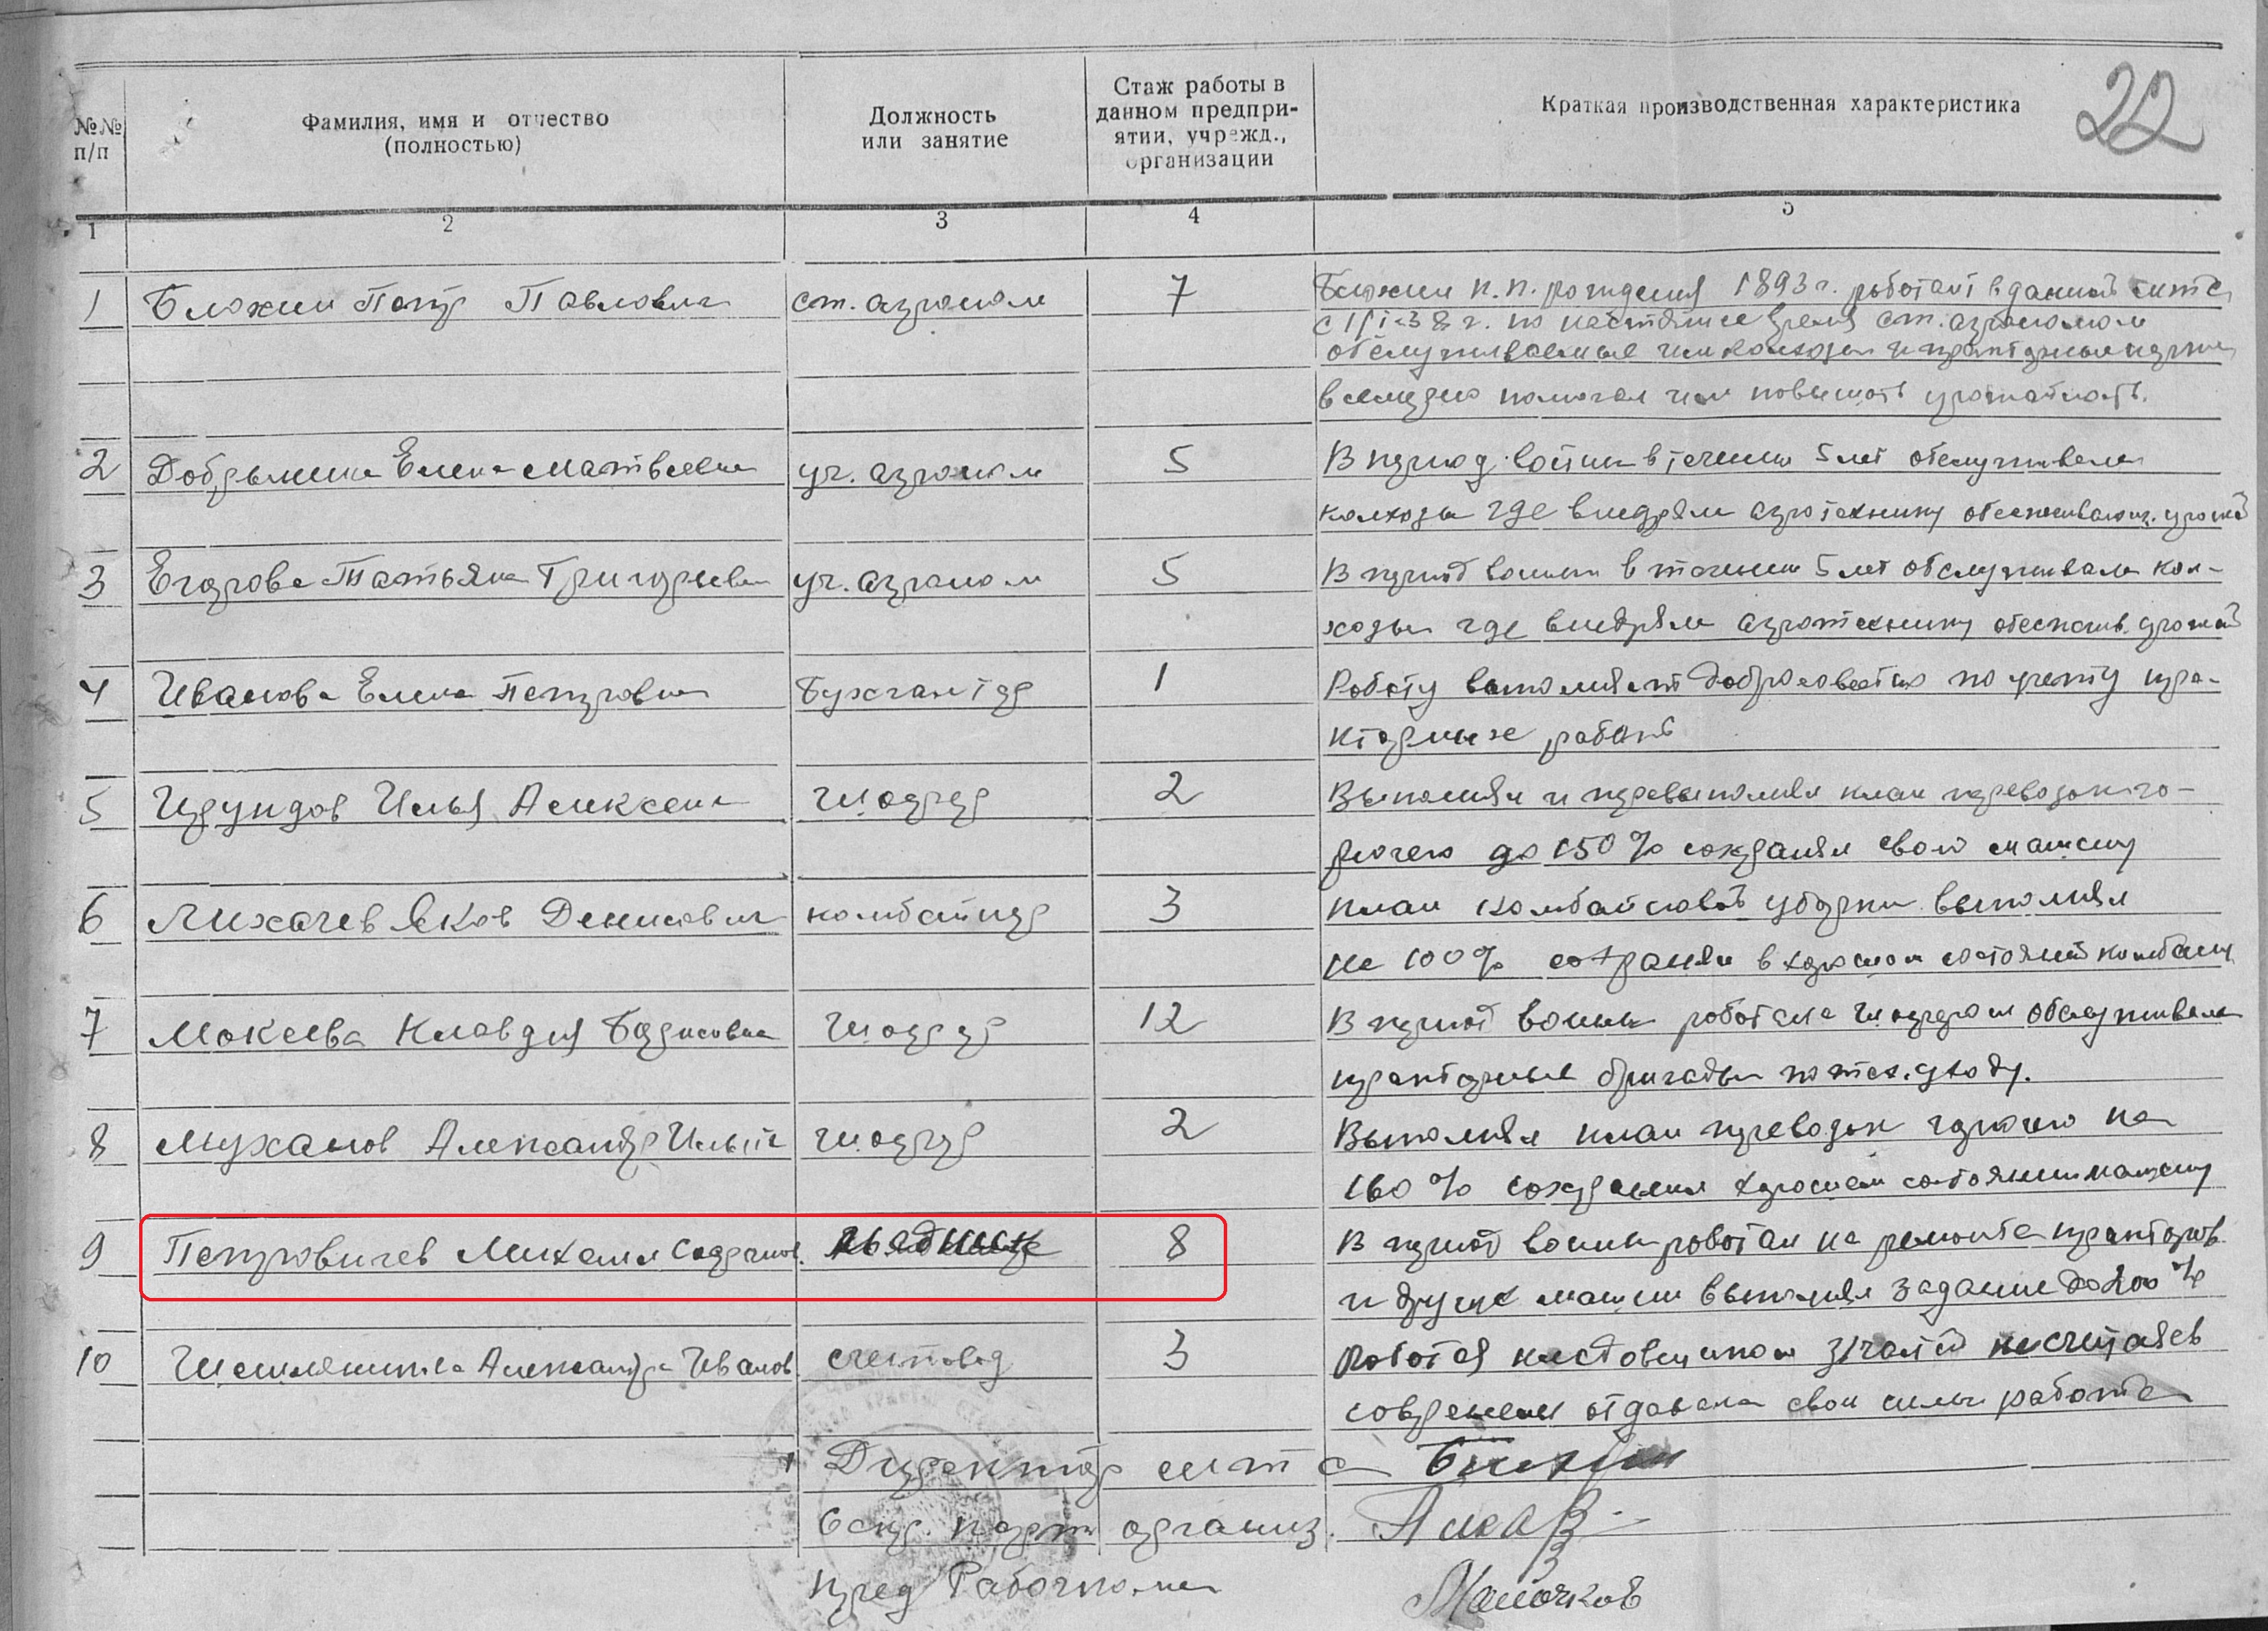 22
№№ п/п
Фамилия, имя и отчество (полностью)
Должность или занятие
Стаж работы в данном предприятии, учрежд., организации
Краткая производственная характеристика
1 2 3 4 5
1 Блохин Петр Павлович ст. агроном 7 Блохин П.П. рождения 1893 г. работает в данной мтс
с 1938 г. по настоящее время ст. агрономом
обслуживаемые им колхозы и тракторные
всемерно помогал им повышать урожайность.
2 Добрынина Елена Матвеевна уч. агроном 5 В период войны в течении 5 лет обслуживала
колхозы где внедряли агротехнику обеспечивающ. урожай
3 Егорова Татьяна Григорьевна уч. агроном 5 В период войны в течении 5 лет обслуживала кол-
хозы где внедряли агротехнику обеспечив. урожай
4 Иванова Елена Петровна Бухгалтер 1 Работу выполняет добросовестно по учету тра-
кторных работ
5 Илья Алексеев шофер 2 Выполнял и перевыполнял план перевозок го-
рючего до 150 % сохранял свою машину
6 Лихачев Яков Денисович комбайнер 3 План комбайновой уборки выполнял
на 100 % сохранял в хорошем состояний комбайну
7 Мокеева Клавдия Борисовна шофер 12 В период войны работала шофером обслуживала
тракторные бригады по тех. уходу.
8 Муханов Александр Ильич шофер 2 Выполнял план перевозок горючего на
160 % сохранял хорошем состоянии машину
9 Петровичев Михаил 8 В период войны работал на ремонте тракторов
и других машин выполнял задание до 200 %
10 Александра Иванов счетовод 3 Работая кладовщиком не считаясь
со временем отдавала свои силы работе
Директор мтс
Секр. парт организ.
Пред Рабочкома